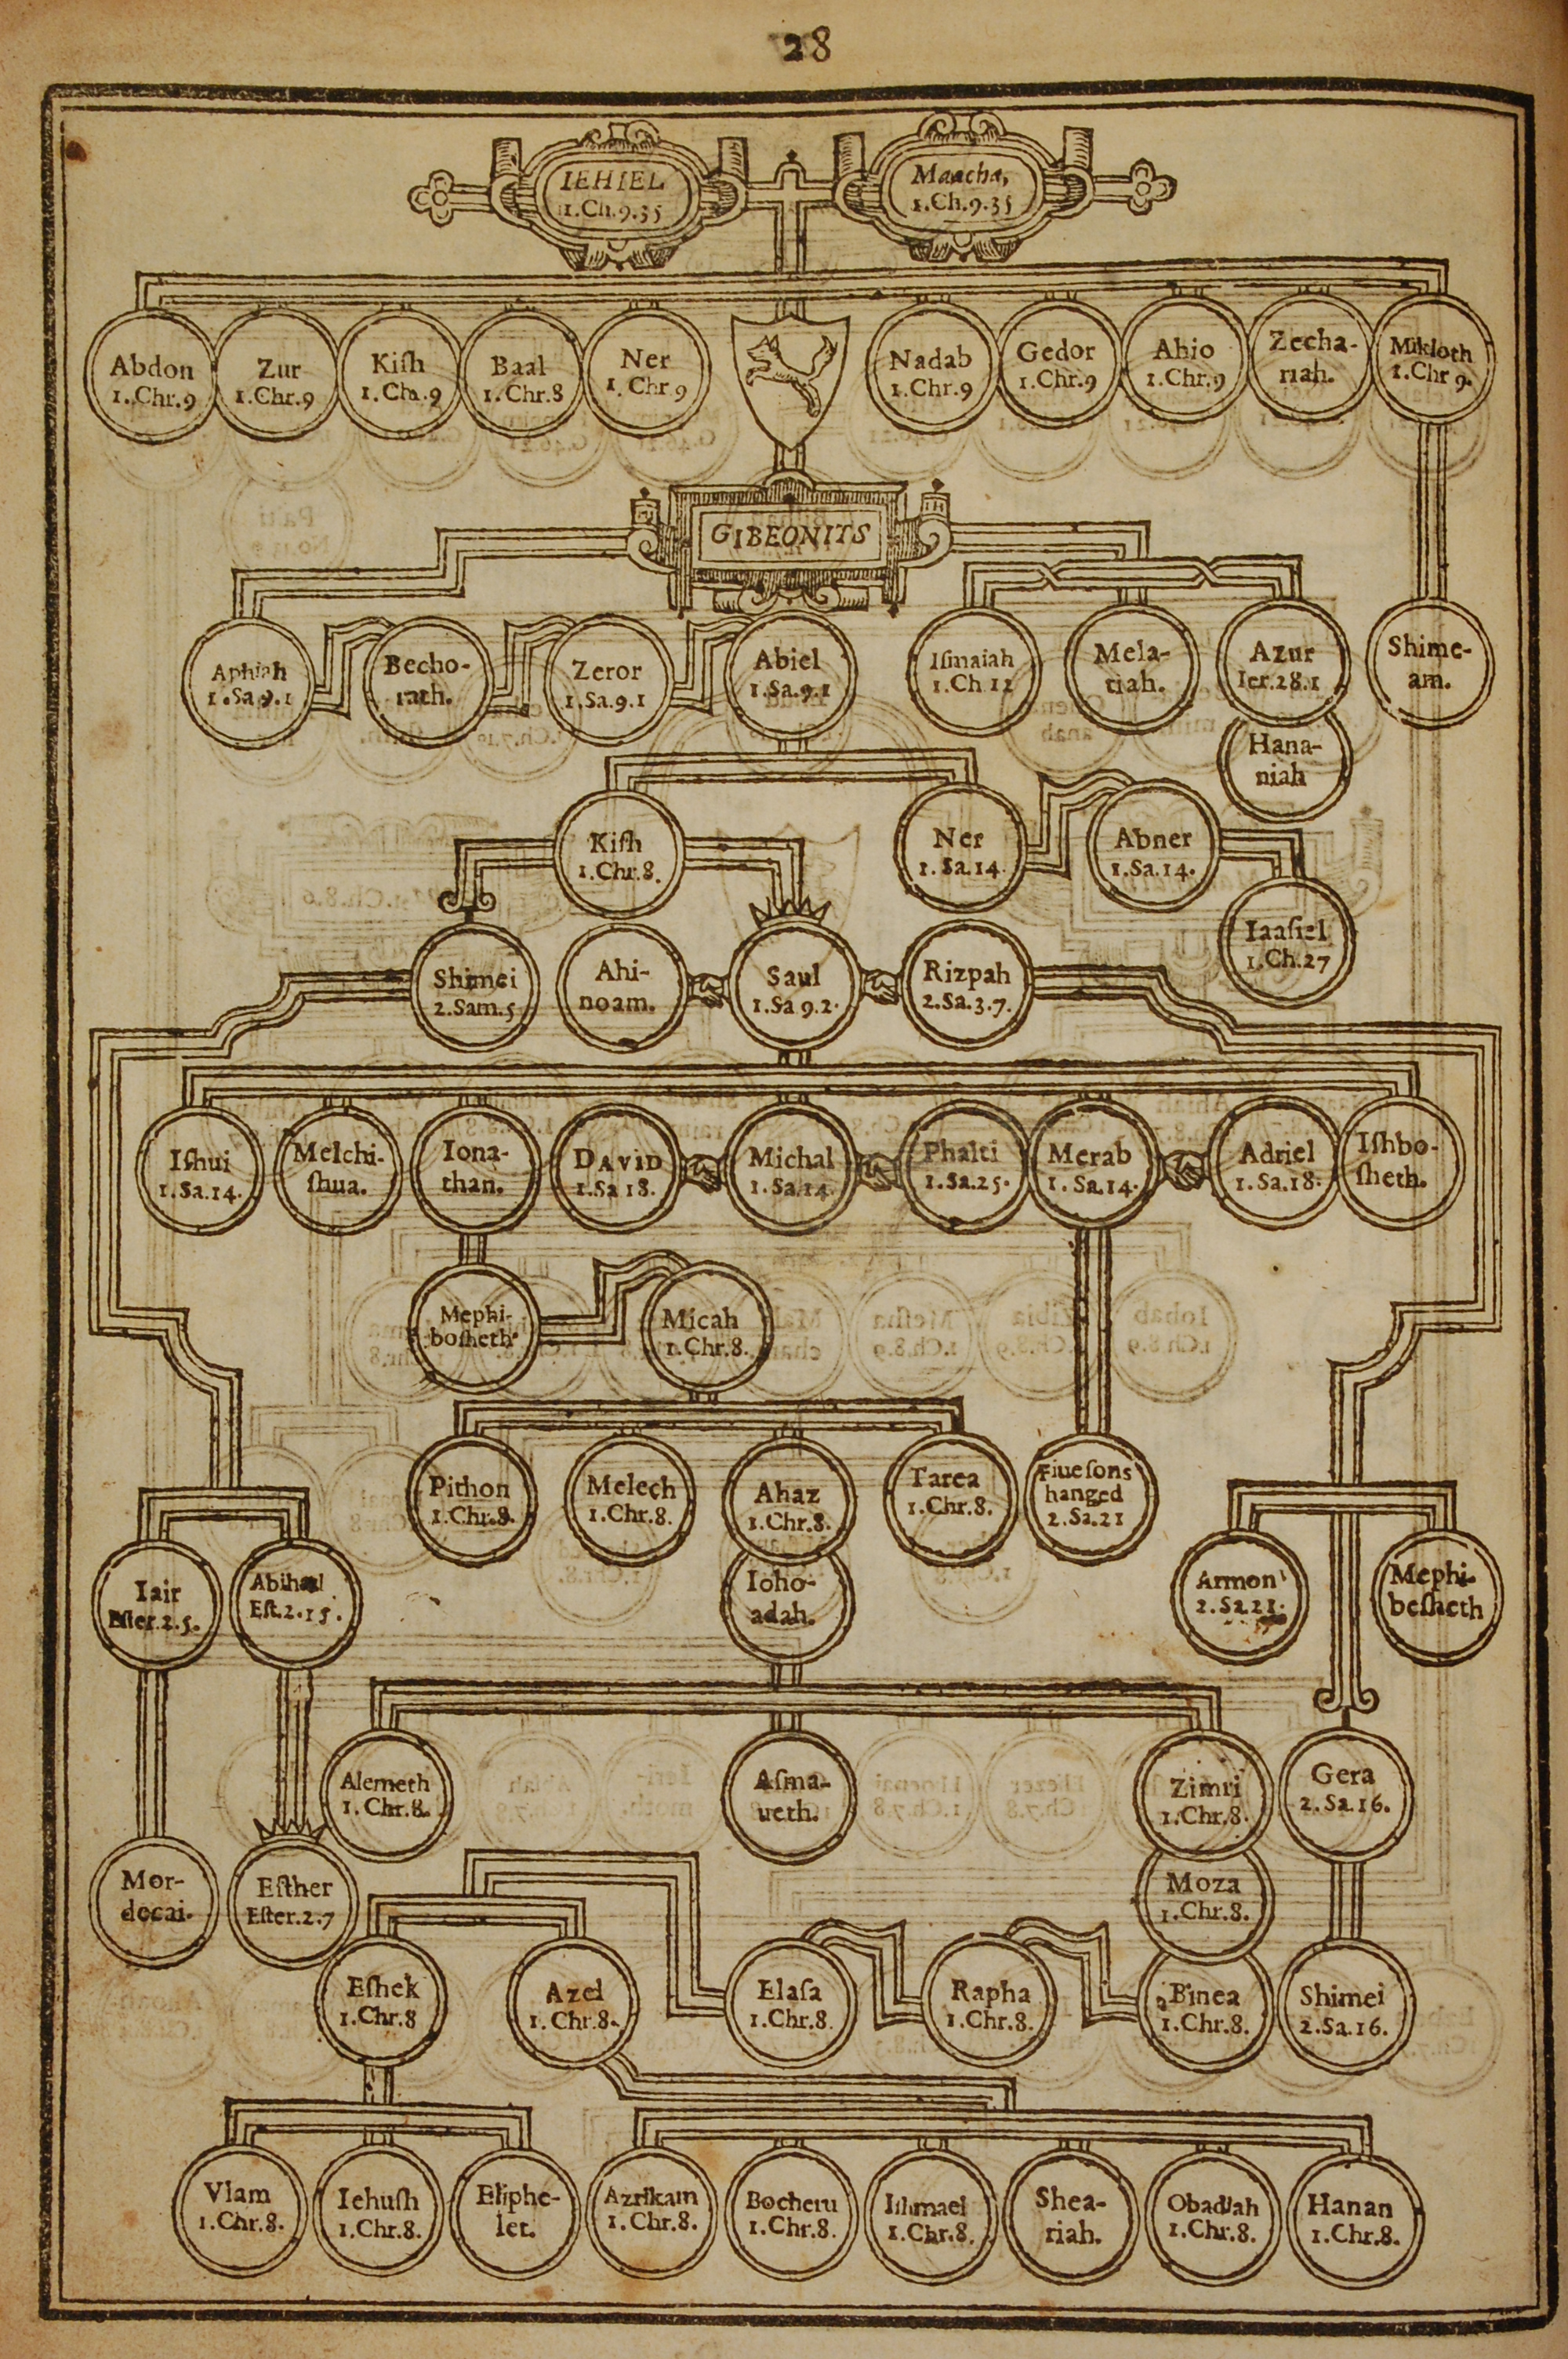 28
IEHIEL
1.Ch.9.35
Maacha,
1.Ch.9.35
Abdon
1.Chr.9
Zur
1.Chr.9
Kiſh
1.Ch.9
Baal
1.Chr.8
Ner
1.Chr 9
Nadab
1.Chr.9
Gedor
1.Chr.9
Ahio
1.Chr.9
Zecha-
riah.
Mikloth
1.Chr 9.
GIBEONITS
Aphiah
1.Sa.9.1
Becho-
rath.
Zeror
1.Sa.9.1
Abiel
1.Sa.9.1
Iſmaiah
1.Ch 12
Mela-
tiah.
Azur
Ier.28.1
Shime-
am.
Hana-
niah
Kiſh
1.Chr.8.
Ner
1.Sa.14.
Abner
1.Sa.14.
Iaaſiel
1.Ch.27
Shimei
2.Sam.5
Ahi-
noam.
Saul
1.Sa 9.2.
Rizpah
2.Sa.3.7.
Iſhui
1.Sa.14.
Melchi-
ſhua.
Iona-
than.
DAVID
1.Sa 18.
Michal
1.Sa.14.
Phalti
1.Sa.25.
Merab
1.Sa.14.
Adriel
1.Sa.18.
Iſhbo-
ſheth.
Mephi-
boſheth
Micah
1.Chr.8.
Pithon
1.Chr.8.
Melech
1.Chr.8.
Ahaz
1.Chr.8.
Tarea
1.Chr.8.
Fiue ſons
hanged
2.Sa.21
Iair
Eſter.2.5.
Abihail
Eſt.2.15.
Ioho-
adah.
Armon
2.Sa.21.
Mephi-
beſheth
Alemeth
1.Chr.8.
Aſma-
ueth.
Zimri
1.Chr.8.
Gera
2.Sa.16.
Mor-
decai.
Eſther
Eſter.2.7
Moza
1.Chr.8.
Eſhek
1.Chr.8
Azel
1.Chr.8.
Elaſa
1.Chr.8.
Rapha
1.Chr.8.
Binea
1.Chr.8.
Shimei
2.Sa.16.
Vlam
1.Chr.8.
Iehuſh
1.Chr.8.
Eliphe-
let.
Azrikam
1.Chr.8.
Bocheru
1.Chr.8.
Iſhmael
1.Chr.8.
Shea-
riah.
Obadiah
1.Chr.8.
Hanan
1.Chr.8.